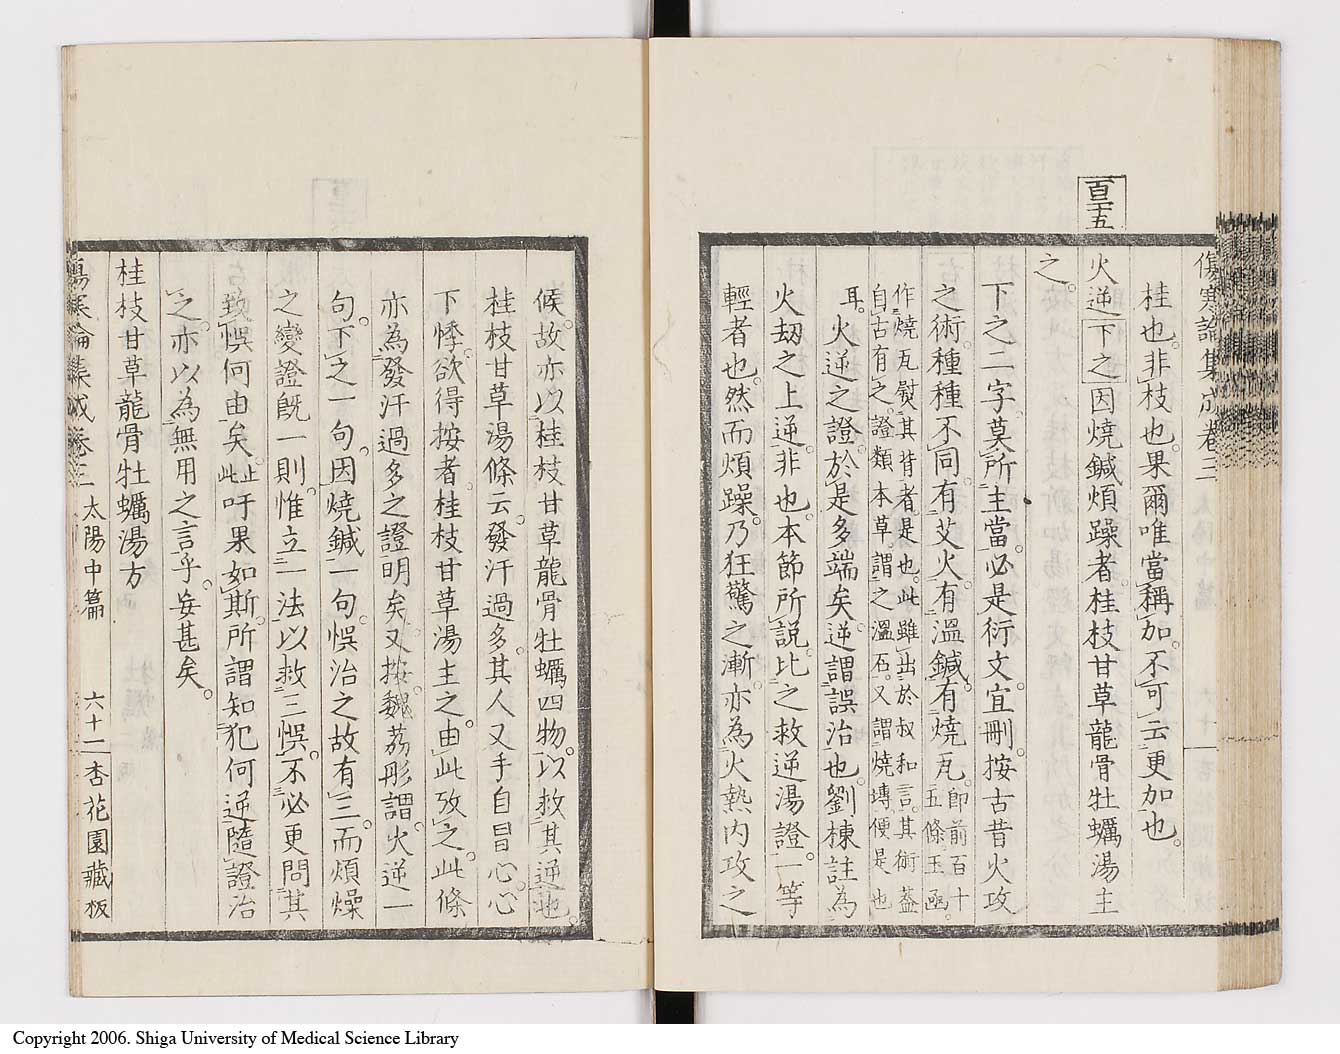 傷寒論集成卷三
桂也。非枝也。果爾唯當稱加。不可云更加也。
百二十五
火逆下之因燒鍼煩躁者。桂枝甘草龍骨牡蠣湯主
之。
下之二字。莫所主當。必是衍文。宜刪。按古昔火攻
之術。種種不同。有艾火。有溫鍼。有燒瓦。即前百十五條玉函
作燒瓦熨其背者。是也。此雖出於叔和言。其術蓋
自古有之。證類本草。謂之溫石。又謂燒塼。便是也
耳。火逆之證。於是多端矣。逆謂誤治也。劉棟註為
火劫之上逆。非也。本節所說。比之救逆湯證。一等
輕者也。然而煩躁。乃狂驚之漸。亦為火熱內攻之
候。故亦以桂枝甘草龍骨牡蠣四物。以救其逆也。
桂枝甘草湯條云。發汗過多。其人叉手自冒心。心
下悸。欲得按者。桂枝甘草湯主之。由此攷之。此條
亦為發汗過多之證明矣。又按魏荔彤謂。火逆一
句。下之一句。因燒鍼一句。悞治之故有三。而煩燥
之變證旣一則。惟立一法以救三悞。不必更問其
致悞何由矣。止此吁果如斯。所謂知犯何逆。隨證治
之。亦以為無用之言乎。妄甚矣。
桂枝甘草龍骨牡蠣湯方
傷寒論集成卷三 太陽中篇 六十一 杏花園藏板
Copyright 2006. Shiga University of Medical Science Library